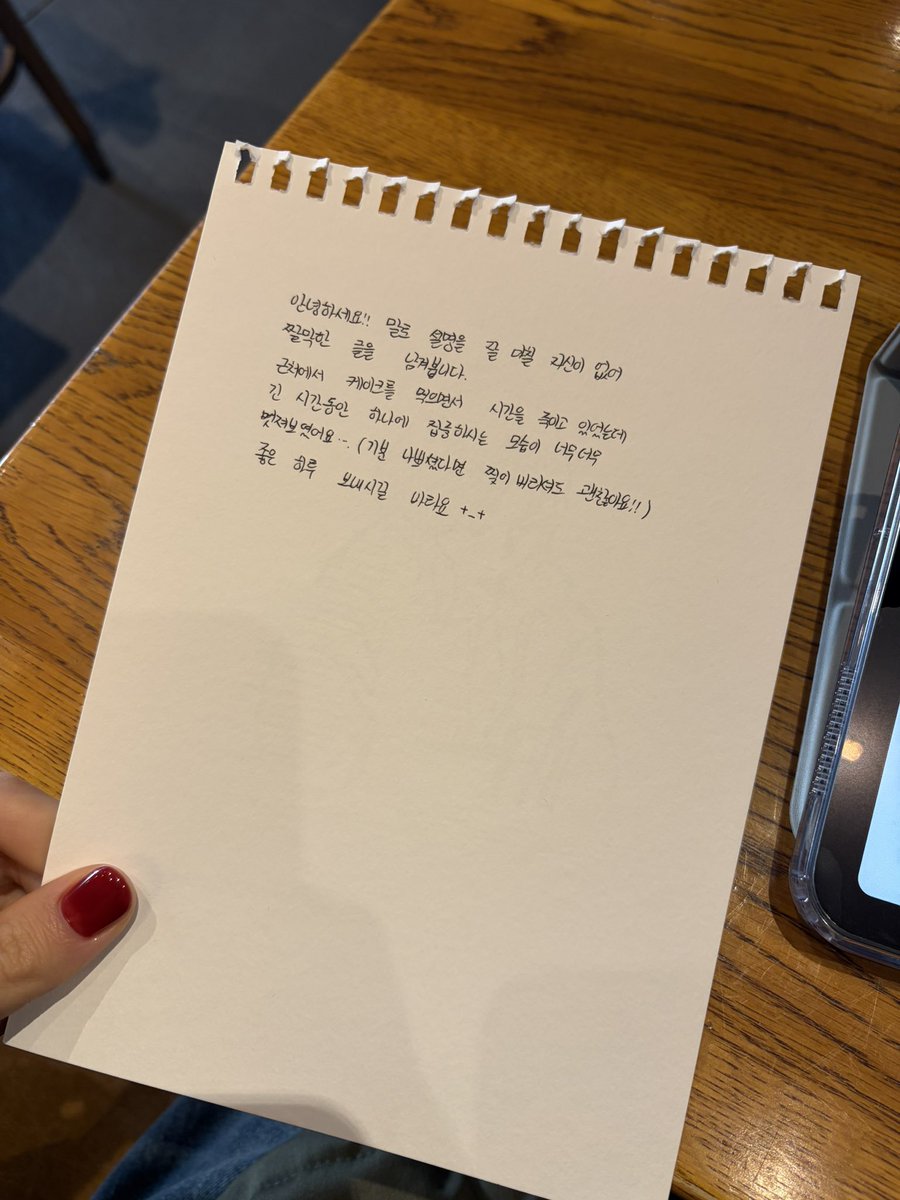 안녕하세요!! 말로 설명을 잘 마칠 자신이 없어
짤막한 글을 남겨봅니다.
근처에서 케이크를 먹으면서 시간을 죽이고 있었는데
긴 시간동안 하나에 집중하시는 모습이 너무너무
멋져보였어요… (기분 나쁘셨다면 찢어버리셔도 괜찮아요!!)
좋은 하루 보내시길 바라요 +_+